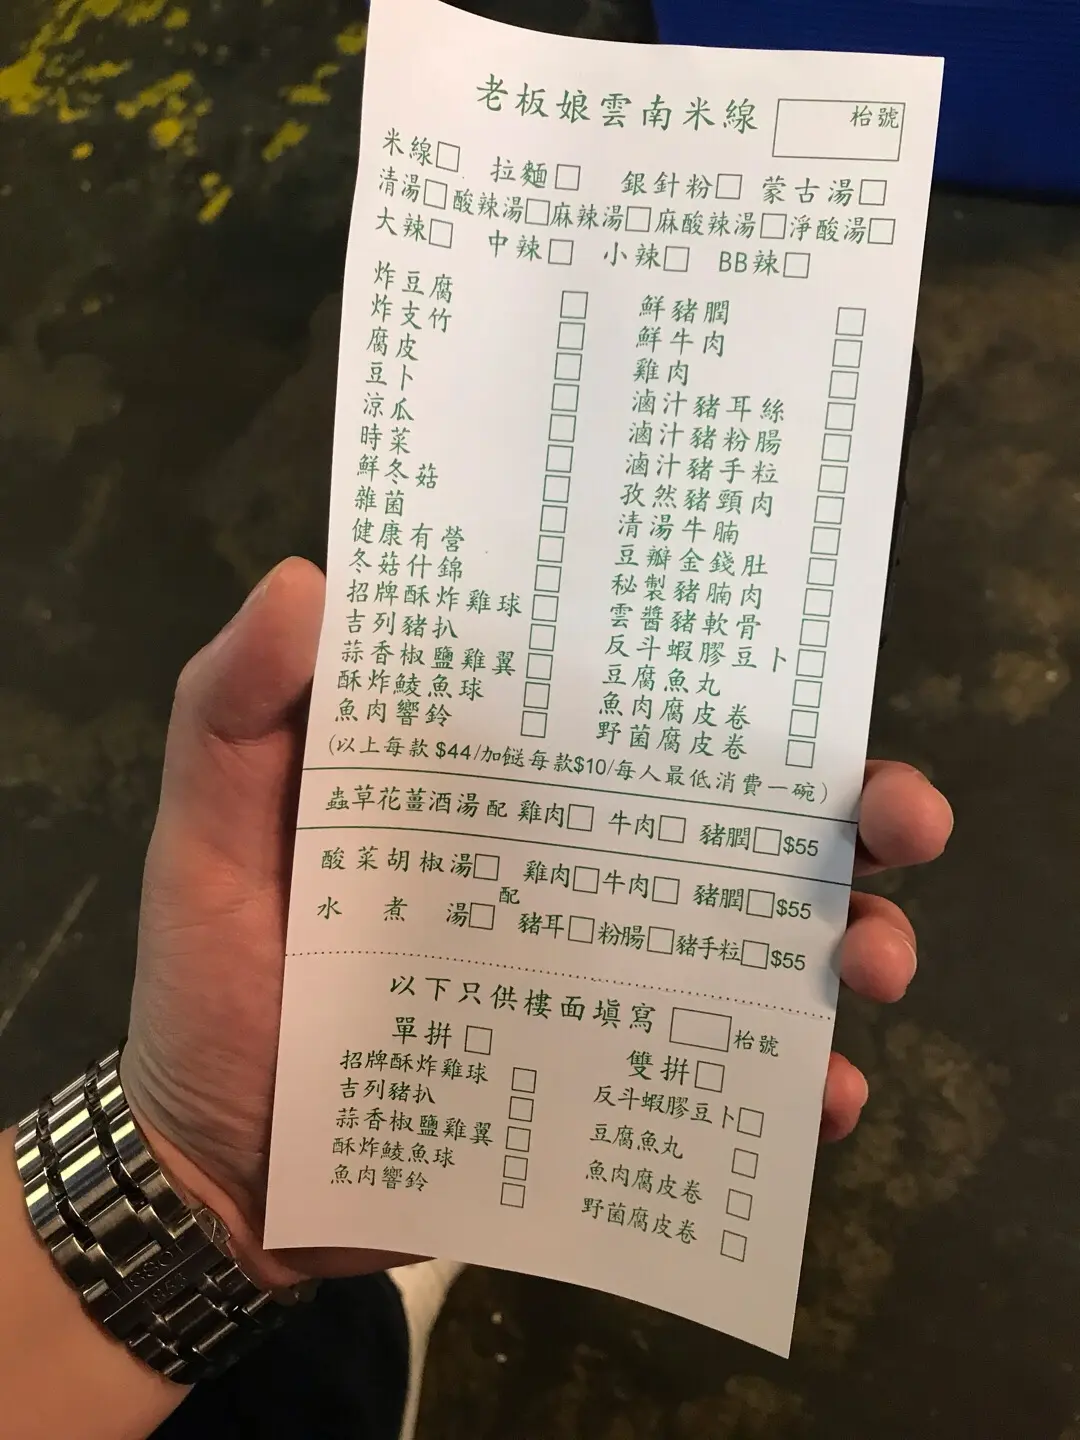 老板娘雲南米線 枱號
米線□ 拉麵□ 銀針粉□ 蒙古湯□
清湯□ 酸辣湯□ 麻辣湯□ 麻酸辣湯□ 淨酸湯□
大辣□ 中辣□ 小辣□ BB辣□
炸豆腐 □
炸支竹 □
腐皮 □
豆卜 □
涼瓜 □
時菜 □
鮮冬菇 □
雜菌 □
健康有營 □
冬菇什錦 □
招牌酥炸雞球 □
吉列豬扒 □
蒜香椒鹽雞翼 □
酥炸鯪魚球 □
魚肉響鈴 □
鮮豬膶 □
鮮牛肉 □
雞肉 □
滷汁豬耳絲 □
滷汁豬粉腸 □
滷汁豬手粒 □
孜然豬頸肉 □
清湯牛腩 □
豆瓣金錢肚 □
秘製豬腩肉 □
雲醬豬軟骨 □
反斗蝦膠豆卜 □
豆腐魚丸 □
魚肉腐皮卷 □
野菌腐皮卷 □
(以上每款$44/加餸每款$10/每人最低消費一碗)
蟲草花薑酒湯 配 雞肉□ 牛肉□ 豬膶□ $55
酸菜胡椒湯□ 雞肉□ 牛肉□ 豬膶□ $55
配
水煮湯□ 豬耳□ 粉腸□ 豬手粒□ $55
以下只供樓面填寫 □ 枱號
單拼 □
招牌酥炸雞球 □
吉列豬扒 □
蒜香椒鹽雞翼 □
酥炸鯪魚球 □
魚肉響鈴 □
雙拼 □
反斗蝦膠豆卜 □
豆腐魚丸 □
魚肉腐皮卷 □
野菌腐皮卷 □
TISSOT
1853